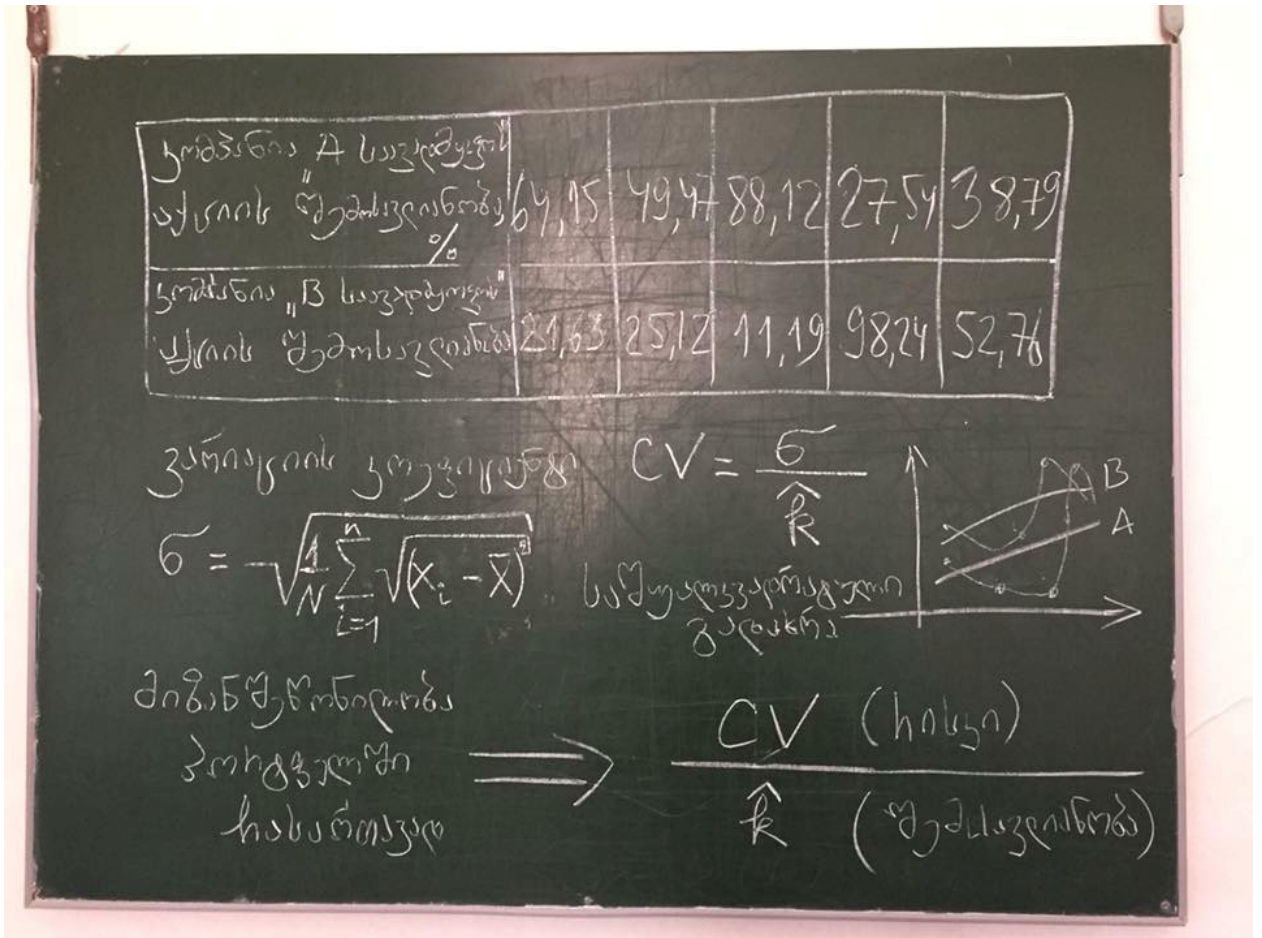 კომპანია „A საავადმყოფოს"
აქციის შემოსავლიანობა % 64,15 49,47 88,12 27,54 38,79
კომპანია „B საავადმყოფოს"
აქციის შემოსავლიანობა 21,63 25,12 11,19 98,24 52,76
ვარიაციის კოეფიციენტი CV = σ / k̂
B
A
σ = √(1/N ∑ i=1 n √(xᵢ - x̄)²)
საშუალკვადრატული
გადახრა
მიზანშეწონილობა
პორტფელში
ჩასართავად
⇒ CV (რისკი) / k̂ (შემოსავლიანობა)